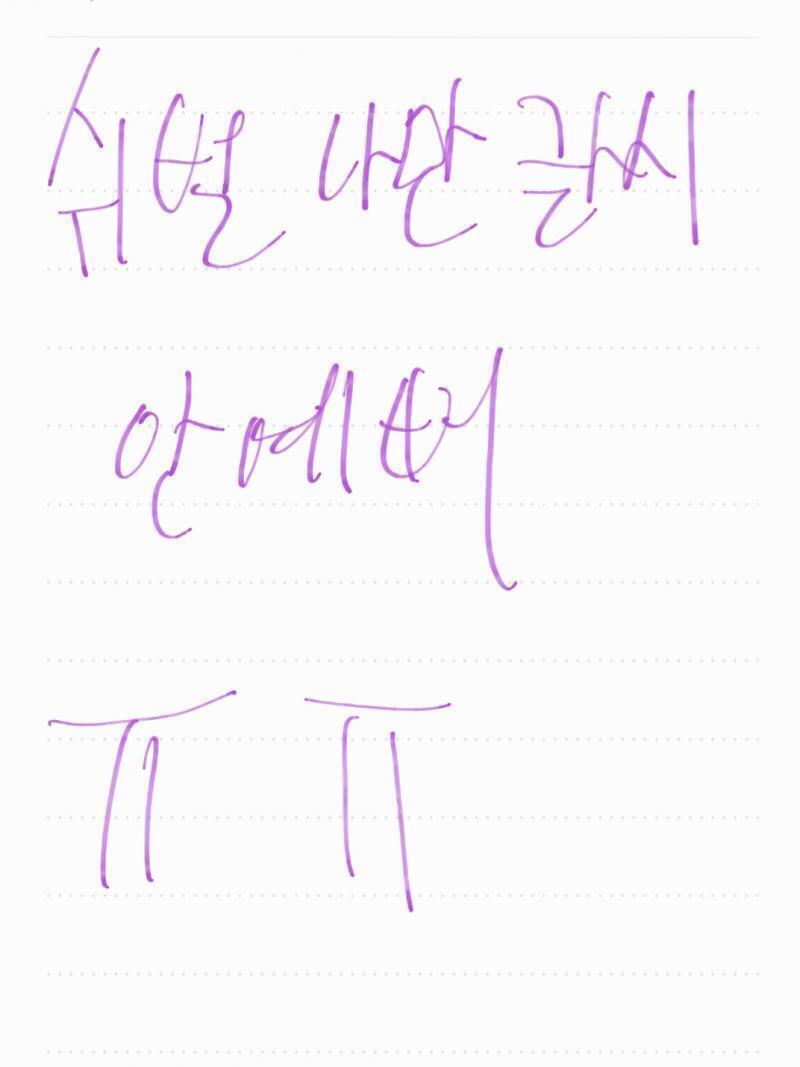 쉬벌 나만 글씨
안예뻐
ㅠㅠ